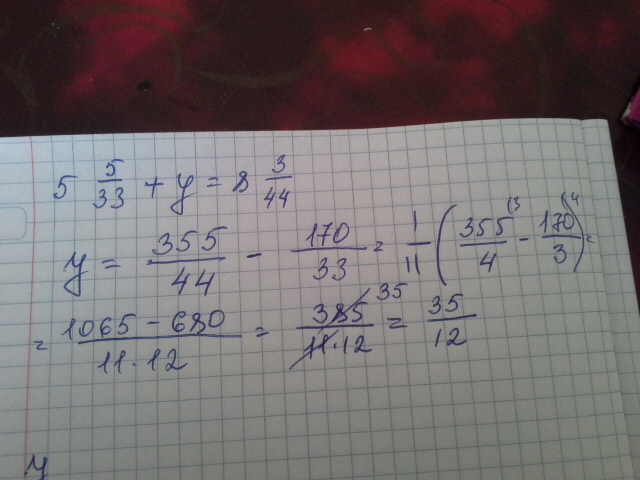 5 5/33 + y = 8 3/44
y = 355/44 - 170/33 = 1/11 (355/4 (3 - 170/3 (4) =
= 1065 - 680/11·12 = 385/11·12 35 = 35/12
y